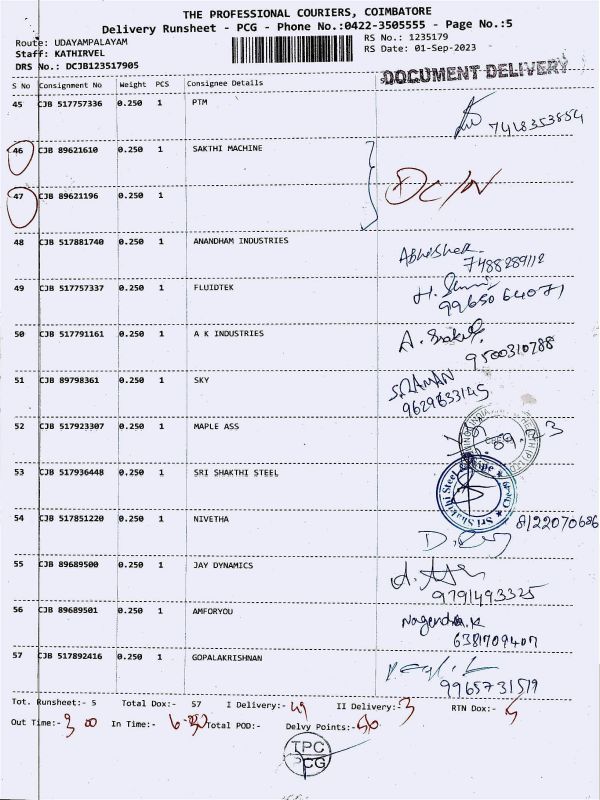 THE PROFESSIONAL COURIERS, COIMBATORE
Delivery Runsheet - PCG - Phone No.:0422-3505555 - Page No.:5
Route: UDAYAMPALAYAM
RS No.: 1235179
Staff: KATHIRVEL
RS Date: 01-Sep-2023
DRS No.: DCJB123517905
DOCUMENT DELIVERY
S No Consignment No Weight PCS Consignee Details
45 CJB 517757336 0.250 1 PTM
7418353854
46 CJB 89621610 0.250 1 SAKTHI MACHINE
DC/N
47 CJB 89621196 0.250 1
48 CJB 517881740 0.250 1 ANANDHAM INDUSTRIES
Abhishek
7488289112
49 CJB 517757337 0.250 1 FLUIDTEK
99650 64071
50 CJB 517791161 0.250 1 A K INDUSTRIES
9500310788
51 CJB 89798361 0.250 1 SKY
S.RAMAN
9629633145
52 CJB 517923307 0.250 1 MAPLE ASS
53 CJB 517936448 0.250 1 SRI SHAKTHI STEEL
Sri Shakthi Steel
54 CJB 517851220 0.250 1 NIVETHA
8122070686
55 CJB 89689500 0.250 1 JAY DYNAMICS
9791493325
56 CJB 89689501 0.250 1 AMFORYOU
Nagendra.K
6381709407
57 CJB 517892416 0.250 1 GOPALAKRISHNAN
9965731519
Tot. Runsheet:- 5 Total Dox:- 57 I Delivery:- 49 II Delivery:- 3 RTN Dox:- 5
Out Time:- 3 00 In Time:- 6-30 Total POD:- Delvy Points:- 50
TPC
PCG